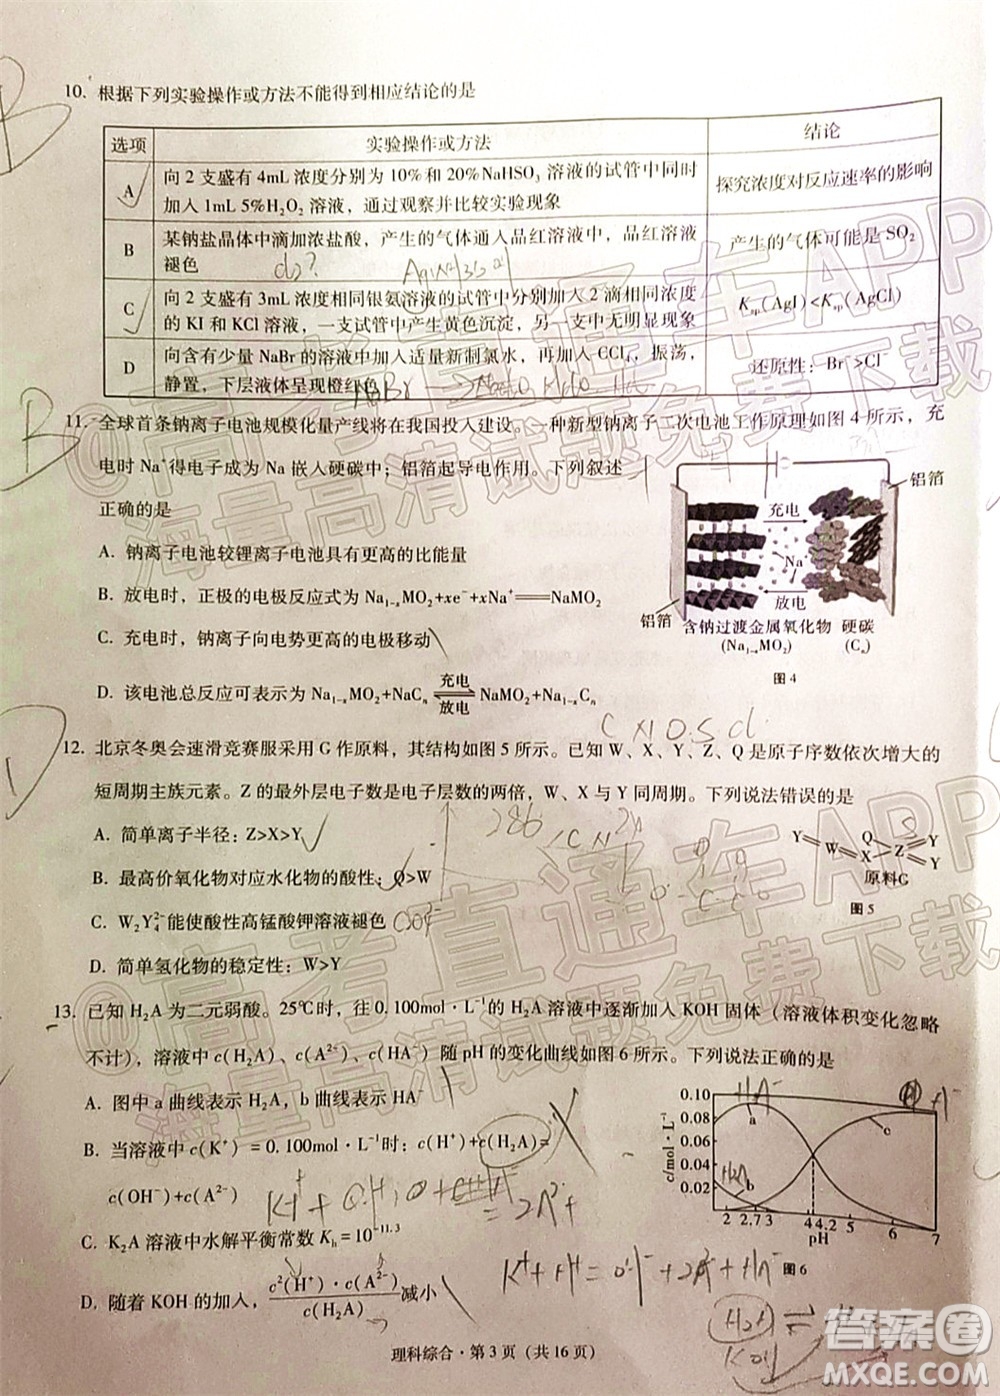 10. 根据下列实验操作或方法不能得到相应结论的是
选项 实验操作或方法 结论
A 向 2 支盛有 4mL 浓度分别为 10% 和 20%NaHSO₃ 溶液的试管中同时
加入 1mL 5%H₂O₂ 溶液，通过观察并比较实验现象 探究浓度对反应速率的影响
B 某钠盐晶体中滴加浓盐酸，产生的气体通入品红溶液中，品红溶液
褪色 产生的气体可能是 SO₂
C 向 2 支盛有 3mL 浓度相同银氨溶液的试管中分别加入 2 滴相同浓度
的 KI 和 KCl 溶液，一支试管中产生黄色沉淀，另一支中无明显现象 Ksp(AgI)<Ksp(AgCl)
D 向含有少量 NaBr 的溶液中加入适量新制氯水，再加入 CCl₄，振荡，
静置，下层液体呈现橙红色 还原性：Br⁻>Cl⁻
11. 全球首条钠离子电池规模化量产线将在我国投入建设。一种新型钠离子二次电池工作原理如图 4 所示，充
电时 Na⁺得电子成为 Na 嵌入硬碳中；铝箔起导电作用。下列叙述
正确的是
A. 钠离子电池较锂离子电池具有更高的比能量
B. 放电时，正极的电极反应式为 Na₁₋ₓMO₂+xe⁻+xNa⁺═══NaMO₂
C. 充电时，钠离子向电势更高的电极移动
D. 该电池总反应可表示为 Na₁₋ₓMO₂+NaCₙ 充电⇌放电 NaMO₂+Na₁₋ₓCₙ
铝箔
充电
Na⁺
放电
铝箔
含钠过渡金属氧化物 硬碳
(Na₁₋ₓMO₂) (Cₙ)
图 4
12. 北京冬奥会速滑竞赛服采用 G 作原料，其结构如图 5 所示。已知 W、X、Y、Z、Q 是原子序数依次增大的
短周期主族元素。Z 的最外层电子数是电子层数的两倍，W、X 与 Y 同周期。下列说法错误的是
A. 简单离子半径：Z>X>Y
B. 最高价氧化物对应水化物的酸性：Q>W
C. W₂Y₄²⁻能使酸性高锰酸钾溶液褪色
D. 简单氢化物的稳定性：W>Y
Y W X Q Z Q Y Y
原料G
图 5
13. 已知 H₂A 为二元弱酸。25℃时，往 0.100mol·L⁻¹的 H₂A 溶液中逐渐加入 KOH 固体（溶液体积变化忽略
不计），溶液中 c(H₂A)、c(A²⁻)、c(HA⁻) 随 pH 的变化曲线如图 6 所示。下列说法正确的是
A. 图中 a 曲线表示 H₂A，b 曲线表示 HA⁻
B. 当溶液中 c(K⁺)=0.100mol·L⁻¹时：c(H⁺)+c(H₂A)=
c(OH⁻)+c(A²⁻)
C. K₂A 溶液中水解平衡常数 Kh=10⁻¹¹·³
D. 随着 KOH 的加入，c²(H⁺)·c(A²⁻)/c(H₂A) 减小
c/mol·L⁻¹
0.10
0.08
0.06
0.04
0.02
a
b
c
2 2.7 3 4 4.2 5 6 7
pH
图 6
理科综合·第 3 页（共 16 页）
@高考直通车APP
海量高清试题免费下载
答案圈
MXQE.COM